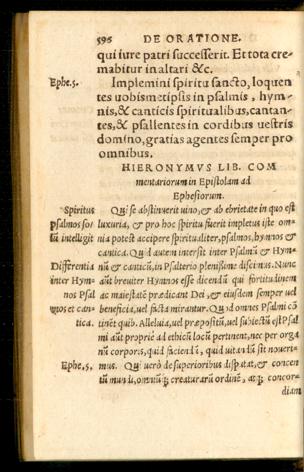 596 DE ORATIONE.
qui iure patri successerit. Et tota cre-
mabitur in altari &c.
Ephe.5.
Implemini spiritu sancto, loquen
tes uobismetipsis in psalmis, hym-
nis, & canticis spiritualibus, cantan-
tes, & psallentes in cordibus uestris
domino, gratias agentes semper pro
omnibus.
HIERONYMVS LIB. COM
mentariorum in Epistolam ad
Ephesiorum.
Spiritus
psalmos so-
lũ intelligit
Qui se abstinuerit uino, & ab ebrietate in quo est
luxuria, & pro hoc spiritu fuerit impletus iste om-
nia potest accipere spiritualiter, psalmos, hymnos &
cantica. Quid autem intersit inter Psalmũ & Hym-
Differentia
inter Hym-
nos Psal
mos et can-
tica.
nũ & canticũ, in Psalterio plenissime discimus. Nunc
aũt breuiter Hymnos esse dicendũ qui fortitudinem
ac maiestatẽ prædicant Dei, & eiusdem semper uel
beneficia, uel facta mirantur. Quod omnes Psalmi cõ
tinẽt quib. Alleluia, uel præpositũ, uel subiectũ est Psal
mi aũt proprie ad ethicũ locũ pertinent, nec per orga
nũ corporis, quid faciendũ, quid uitandũ sit noueri-
Ephe.5.
mus. Qui uerò de superioribus disputat, & concen
tũ mundi, omniũq; creaturarũ ordinẽ, atq; concor-
diam